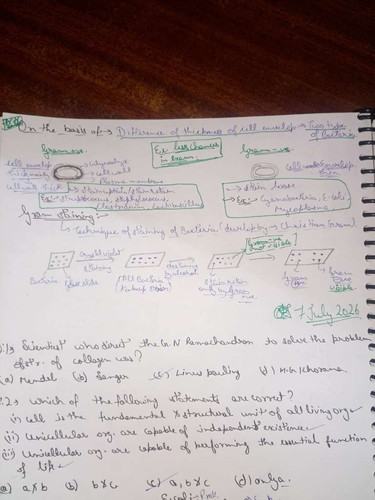 On the basis of → Difference of thickness of cell envelop → Two type of Bacteria
Gram +ve.
Ex: less chances in Exam.
Gram -ve.
cell envelop
thick
→ Glycocalyx
→ cell wall
Plasma membrane
cell envelop
thin
cell wall thick
→ Stain
Ex:-
Streptococcus, Staphylococcus,
Clostridium, Lactobacillus
→ stain loose
→ Ex:- Cyanobacteria, E.coli,
Mycoplasma
Gram staining:-
↳ Technique of staining of Bacteria (develop by → Christian Gram)
crystal violet
staining
alcohol
Gram -ve
visible
Bacteria
slide
(All Bacteria
)
Gram
+ve
7 July 2026
Scientist who direct the G N Ramachandran to solve the problem
of str. of collagen was?
(a) Mendel (b) Sanger (c) Linus pauling (d) H.G. Khorana
2.2) which of the following statements are correct?
(i) Cell is the fundamental & structural unit of all living org.
(ii) Unicellular org. are capable of independent existence
(iii) Unicellular org. are capable of performing the essential function
of life
(a) a & b (b) b & c (c) a, b & c (d) only a
E.coli